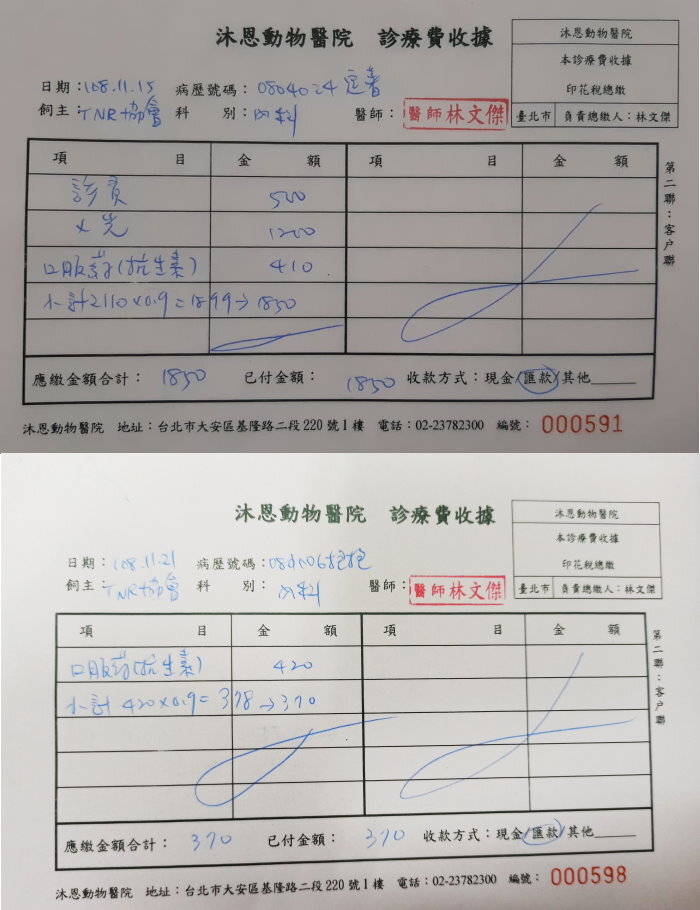 沐恩動物醫院 診療費收據
沐恩動物醫院
本診療費收據
印花稅總繳
臺北市 負責總繳人：林文傑
日期：108.11.15 病歷號碼：0804024
飼主：TNR協會 科 別：內科 醫師：醫師林文傑
項 目 金 額 項 目 金 額
診費 500
X光 1200
口服葯(抗生素) 410
小計2110×0.9=1899→1850
應繳金額合計：1850 已付金額：1850 收款方式：現金/匯款/其他
第二聯：客戶聯
沐恩動物醫院 地址：台北市大安區基隆路二段220號1樓 電話：02-23782300 編號：000591
沐恩動物醫院 診療費收據
沐恩動物醫院
本診療費收據
印花稅總繳
臺北市 負責總繳人：林文傑
日期：108.11.21 病歷號碼：
飼主：TNR協會 科 別：內科 醫師：醫師林文傑
項 目 金 額 項 目 金 額
口服葯(抗生素) 420
小計 420×0.9=378→370
應繳金額合計：370 已付金額：370 收款方式：現金/匯款/其他
第二聯：客戶聯
沐恩動物醫院 地址：台北市大安區基隆路二段220號1樓 電話：02-23782300 編號：000598